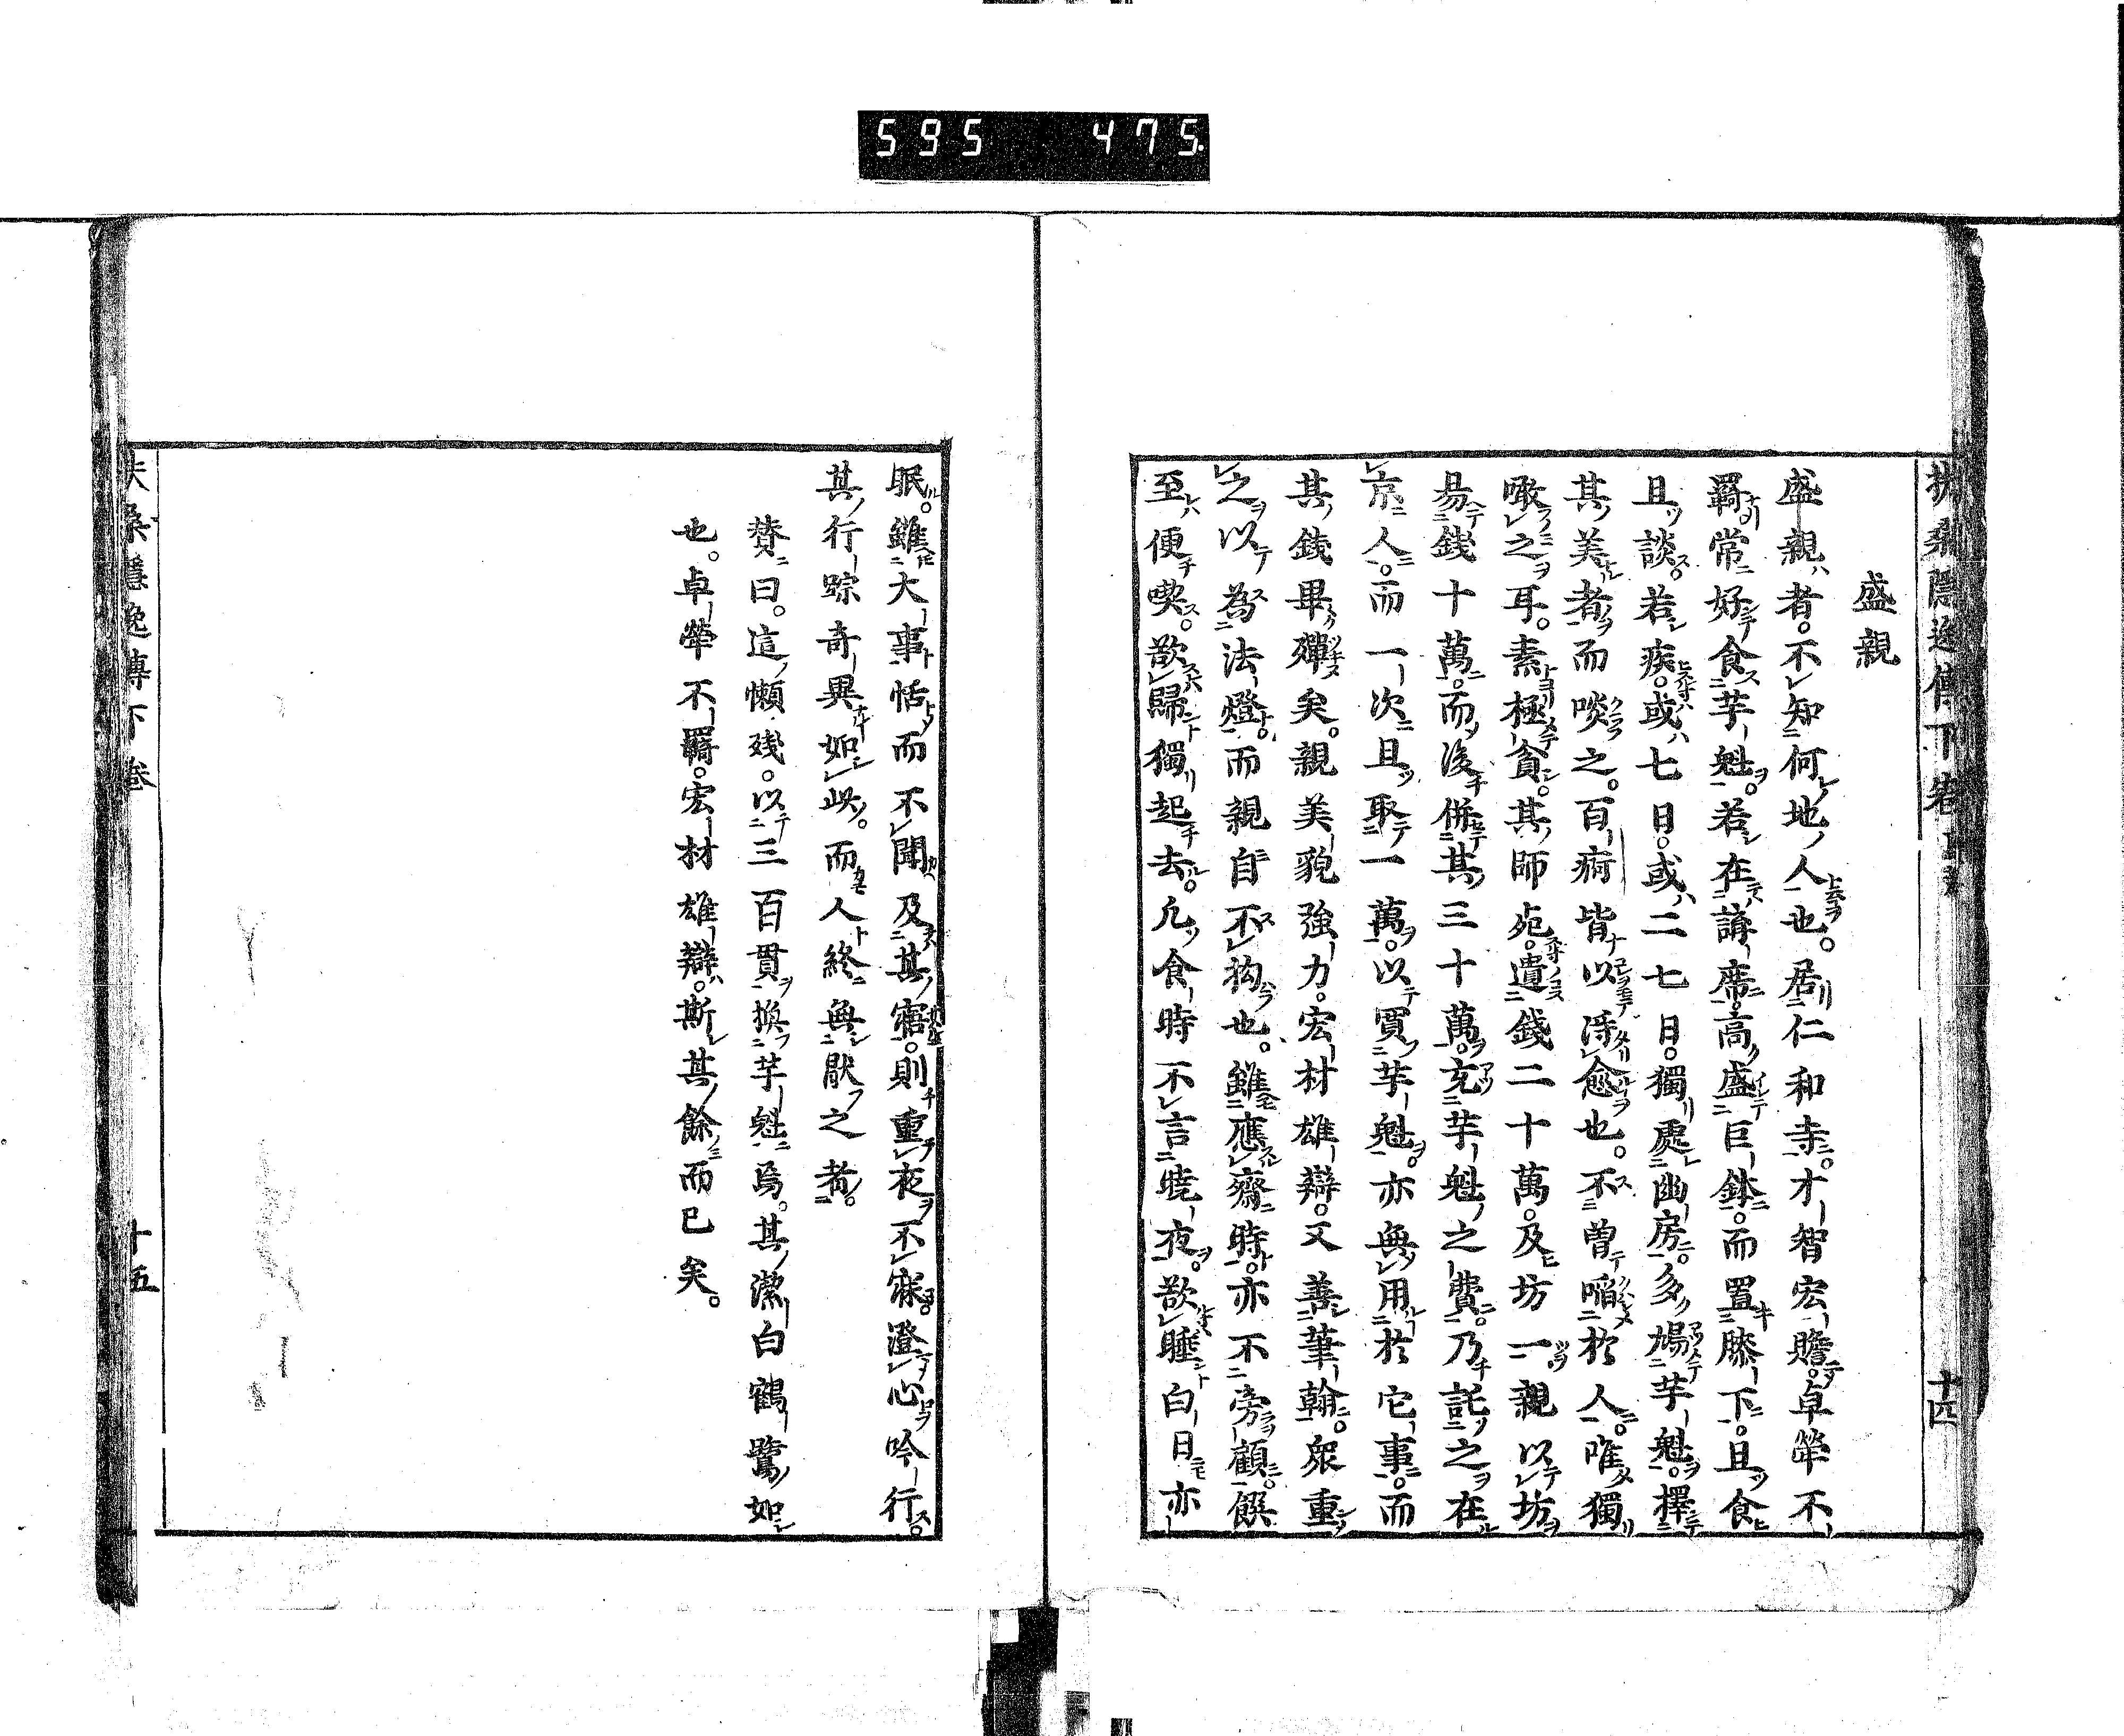 595 475.
扶桑隱逸傳下卷 十四
盛親
盛親者。不知何地人也。居仁和寺。才智宏贍。卓犖不
羈。常好食芋魁。若在講席。高盛巨鉢。而置膝下。且食
且談。若疾。或七日。或二七日。獨處幽房。多煬芋魁。擇
其美者而啖之。百痾皆以得愈也。不曾啗於人。唯獨
噉之耳。素極貧。其師死。遺錢二十萬。及坊一。親以坊
易錢十萬。而後併其三十萬。充芋魁之費。乃託之在
京人。而一次且取一萬。以買芋魁。亦無用於它事。而
其錢畢殫矣。親美貌強力。宏材雄辯。又善筆翰。眾重
之以為法燈。而親自不拘也。雖應齋時。亦不旁顧。饌
至便喫。欲歸獨起去。凡食時不言曉夜。欲睡白日亦
眠。雖大事恬而不聞。及其寤。則重夜不寐。澄心吟行。
其行踪奇異如此。而人終無厭之者。
贊曰。這懶殘。以三百貫換芋魁焉。其潔白鶴鷺如
也。卓犖不羈。宏材雄辯。斯其餘而已矣。
扶桑隱逸傳下卷 十五